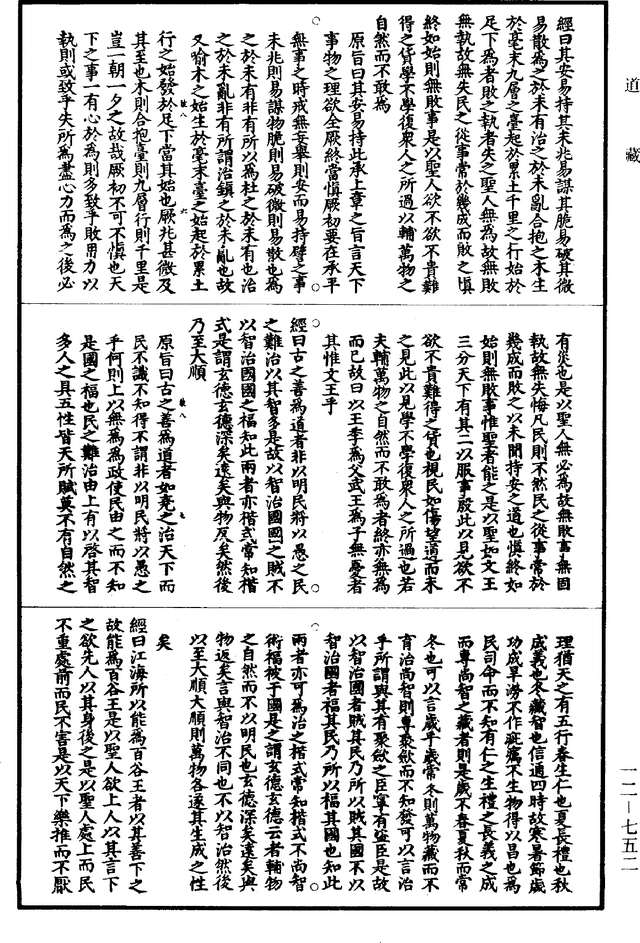 道藏
經曰其安易持其未兆易謀其脆易破其微
易散為之於未有治之於未亂合抱之木生
於毫末九層之臺起於累土千里之行始於
足下為者敗之執者失之聖人無為故無敗
無執故無失民之從事常於幾成而敗之慎
終如始則無敗事是以聖人欲不欲不貴難
得之貨學不學復衆人之所過以輔萬物之
自然而不敢為
原旨曰其安易持此承上章之旨言天下
事物之理欲全厥終當慎厥初要在承平
無事之時戒無妄舉則安而易持譬之事
未兆則易謀物脆則易破微則易散也為
之於未有非有所以為杜之於未有也治
之於未亂非有所謂治鎮之於未亂也故
又喻木之始生於毫末臺之始起於累土
行之始發於足下當其始也厥兆甚微及
其至也木則合抱臺則九層行則千里是
豈一朝一夕之故哉厥初不可不慎也天
下之事一有心於為則多致乎敗用力以
執則或致乎失所為盡心力而為之後必
有災也是以聖人無必為故無敗事無固
執故無失悔凡民則不然民之從事常於
幾成而敗之以未聞持安之道也慎終如
始則無敗事惟聖者能之是以聖如文王
三分天下有其二以服事殷此以見欲不
欲不貴難得之貨也視民如傷望道而未
之見此以見學不學復衆人之所過也若
夫輔萬物之自然而不敢為者終亦無為
而已故曰以王季為父武王為子無憂者
其惟文王乎
經曰古之善為道者非以明民將以愚之民
之難治以其智多是故以智治國國之賊不
以智治國國之福知此兩者亦楷式常知楷
式是謂玄德玄德深矣遠矣與物反矣然後
乃至大順
原旨曰古之善為道者如堯之治天下而
民不識不知得不謂非以明民將以愚之
乎何則上以無為為政使民由之而不知
是國之福也民之難治由上有以啓其智
多人之具五性皆天所賦莫不有自然之
理猶天之有五行春生仁也夏長禮也秋
成義也冬藏智也信通四時故寒暑節歲
功成旱澇不作疵癘不生物得以昌也為
民司命而不知有仁之生禮之長義之成
而專尚智之藏者則是歲不春夏秋而常
冬也可以言歲乎歲常冬則萬物藏而不
育治尚智則專聚歛而不知發可以言治
乎所謂與其有聚歛之臣寧有盜臣是故
以智治國者賊其民乃所以賊其國不以
智治國者福其民乃所以福其國也知此
兩者亦可為治之楷式常知楷式不尚智
術福被于國是之謂玄德玄德云者輔物
之自然而不以明民也玄德深矣遠矣與
物返矣言與智治不同也不以智治然後
以至大順大順則萬物各遂其生成之性
矣
經曰江海所以能為百谷王者以其善下之
故能為百谷王是以聖人欲上人以其言下
之欲先人以其身後之是以聖人處上而民
不重處前而民不害是以天下樂推而不厭
一二—七五二